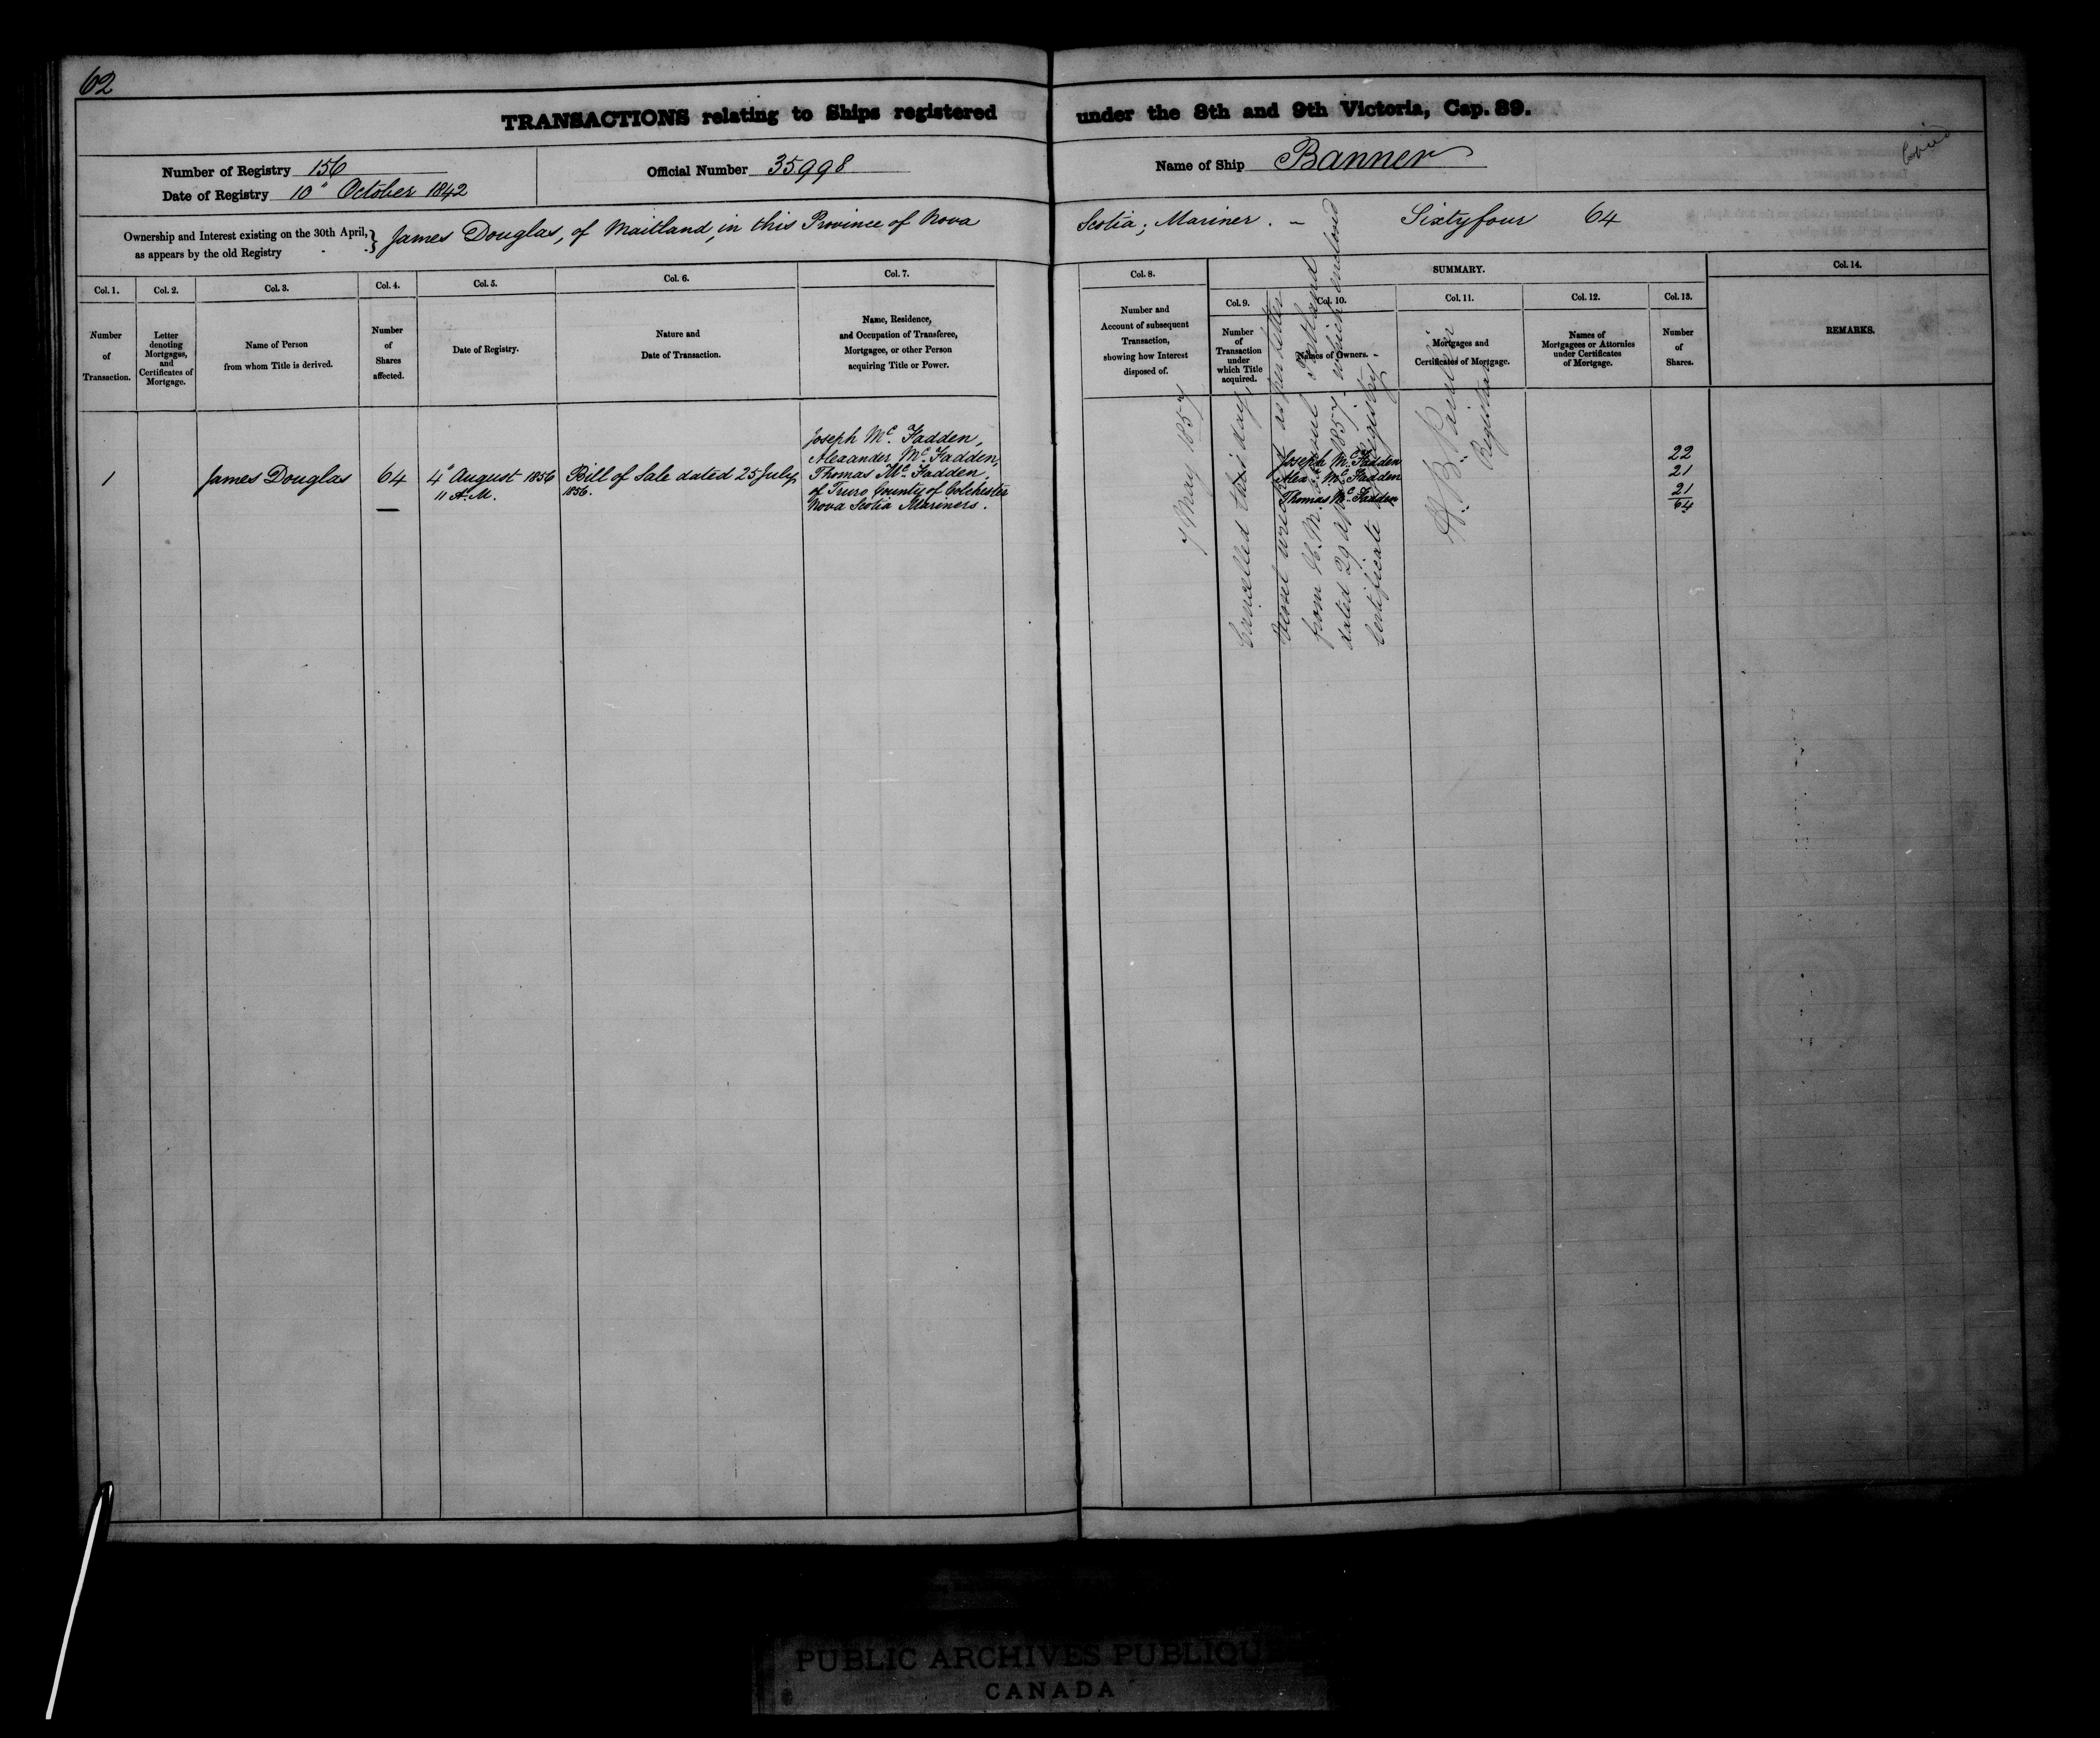 62
TRANSACTIONS relating to Ships registered under the 8th and 9th Victoria, Cap. 89.
Number of Registry 156
Date of Registry 10" October 1842
Official Number 35998
Name of Ship Banner
Ownership and Interest existing on the 30th April, as appears by the old Registry } James Douglas, of Maitland, in this Province of Nova Scotia; Mariner. - Sixty four 64
Col. 1.
Number
of
Transaction.
Col. 2.
Letter
denoting
Mortgages,
and
Certificates of
Mortgage.
Col. 3.
Name of Person
from whom Title is derived.
Col. 4.
Number
of
Shares
affected.
Col. 5.
Date of Registry.
Col. 6.
Nature and
Date of Transaction.
Col. 7.
Name, Residence,
and Occupation of Transferee,
Mortgagee, or other Person
acquiring Title or Power.
Col. 8.
Number and
Account of subsequent
Transaction,
showing how Interest
disposed of.
SUMMARY.
Col. 9.
Number
of
Transaction
under
which Title
acquired.
Col. 10.
Names of Owners.
Col. 11.
Mortgages and
Certificates of Mortgage.
Col. 12.
Names of
Mortgagees or Attornies
under Certificates
of Mortgage.
Col. 13.
Number
of
Shares.
Col. 14.
REMARKS.
1
James Douglas
64
4" August 1856
11 A.M.
Bill of Sale dated 25 July
1856.
Joseph Mc. Fadden,
Alexander Mc. Fadden,
Thomas Mc. Fadden,
of Truro County of Colchester
Nova Scotia Mariners.
Joseph Mc. Fadden
Alexr. Mc. Fadden
Thomas Mc. Fadden
22
21
21
64
7 May 1857
Cancelled this day
as per letter
from H. M. Consul Portland
dated 29 April 1857. which enclosed
Certificate Registry
Registrar
PUBLIC ARCHIVES PUBLIQU
CANADA